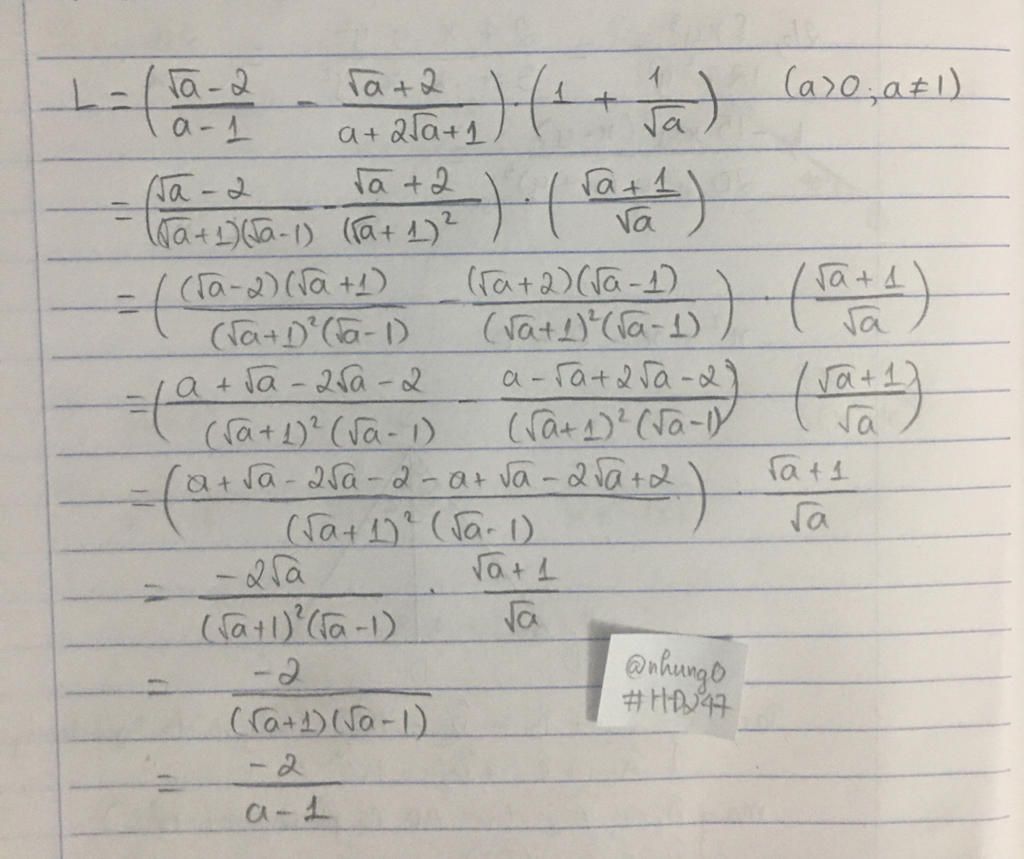 L = ( (√a - 2)/(a - 1) - (√a + 2)/(a + 2√a + 1) ) · ( 1 + 1/√a ) (a>0; a≠1)
= ( (√a - 2)/((√a+1)(√a-1)) - (√a + 2)/((√a+1)²) ) · ( (√a+1)/√a )
= ( ((√a-2)(√a+1))/((√a+1)²(√a-1)) - ((√a+2)(√a-1))/((√a+1)²(√a-1)) ) · ( (√a+1)/√a )
= ( (a + √a - 2√a - 2)/((√a+1)²(√a-1)) - (a - √a + 2√a - 2)/((√a+1)²(√a-1)) ) ( (√a+1)/√a )
= ( (a + √a - 2√a - 2 - a + √a - 2√a + 2)/((√a+1)²(√a-1)) ) · (√a+1)/√a
= (-2√a)/((√a+1)²(√a-1)) · (√a+1)/√a
= (-2)/((√a+1)(√a-1))
= (-2)/(a-1)
@nhung0